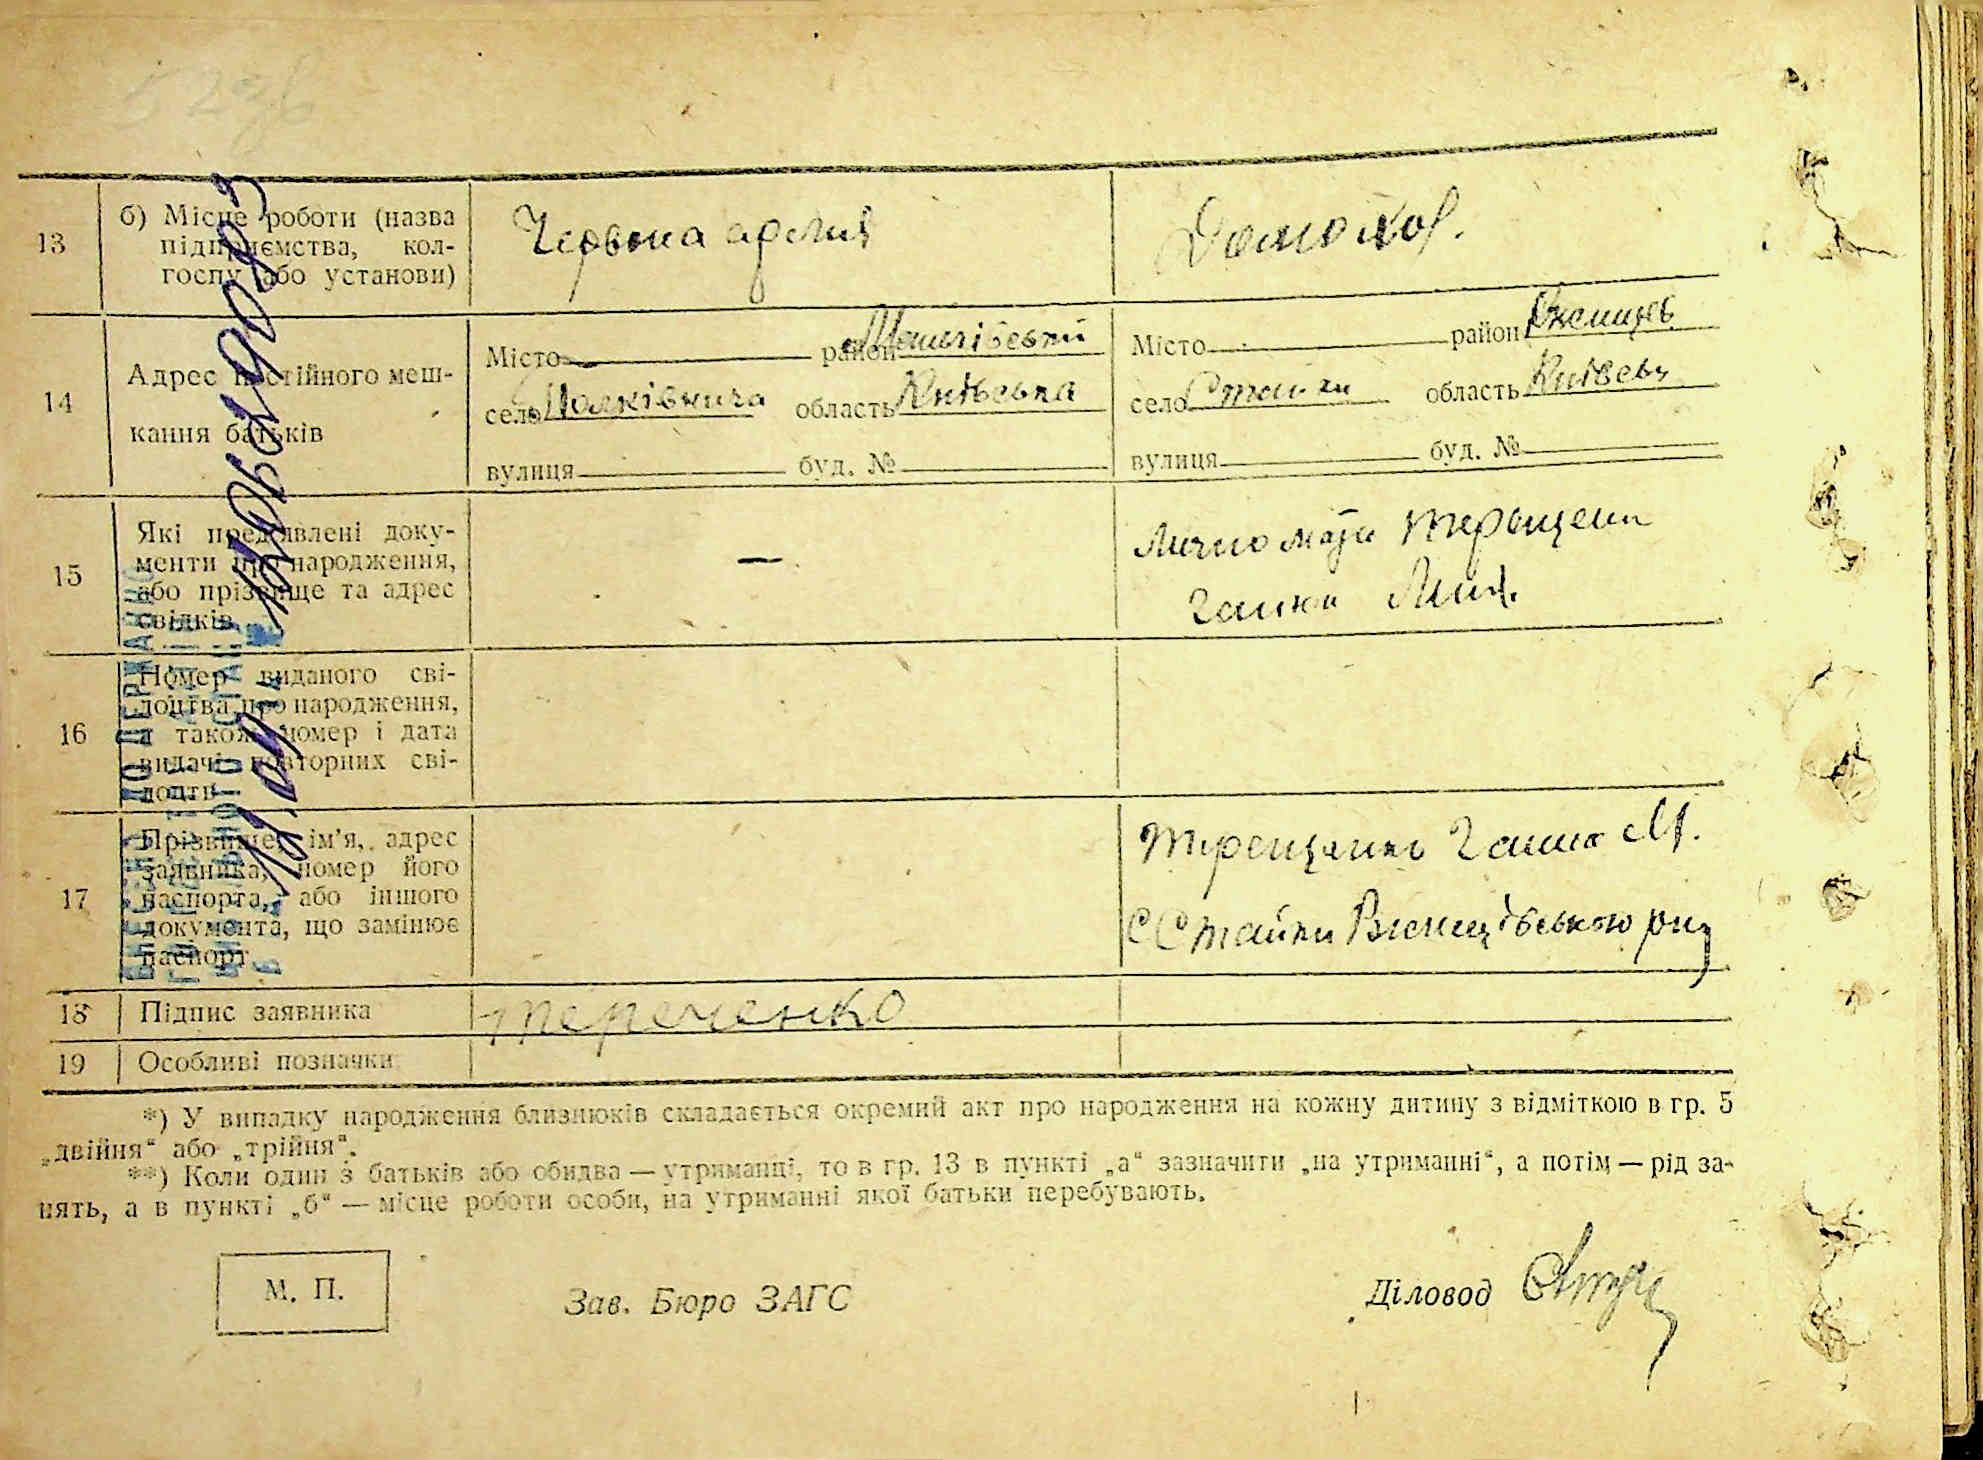 13
б) Місце роботи (назва
підприємства, кол-
госпу або установи)
Червона армия
Домохоз.
14
Адрес постійного меш-
кання батьків
Місто район
село область Київська
вулиця буд. №
Місто район Ржищев
село Стайки область Київськ
вулиця буд. №
15
Які пред'явлені доку-
менти про народження,
або прізвище та адрес
свідків
—
Лично мати Терещенк
Ганна Мих.
16
Номер виданого сві-
доцтва про народження,
а також номер і дата
видачі повторних сві-
доцтв
17
Прізвище, ім'я, адрес
заявника, номер його
паспорта, або іншого
документа, що замінює
паспорт
Терещенко Ганна М.
с Стайки Ржищівського рну
18
Підпис заявника
тереченко
19
Особливі позначки
*) У випадку народження близнюків складається окремий акт про народження на кожну дитину з відміткою в гр. 5
„двійня“ або „трійня“.
**) Коли один з батьків або обидва — утриманці, то в гр. 13 в пункті „а“ зазначити „на утриманні“, а потім — рід за-
нять, а в пункті „б“ — місце роботи особи, на утриманні якої батьки перебувають.
М. П.
Зав. Бюро ЗАГС
Діловод